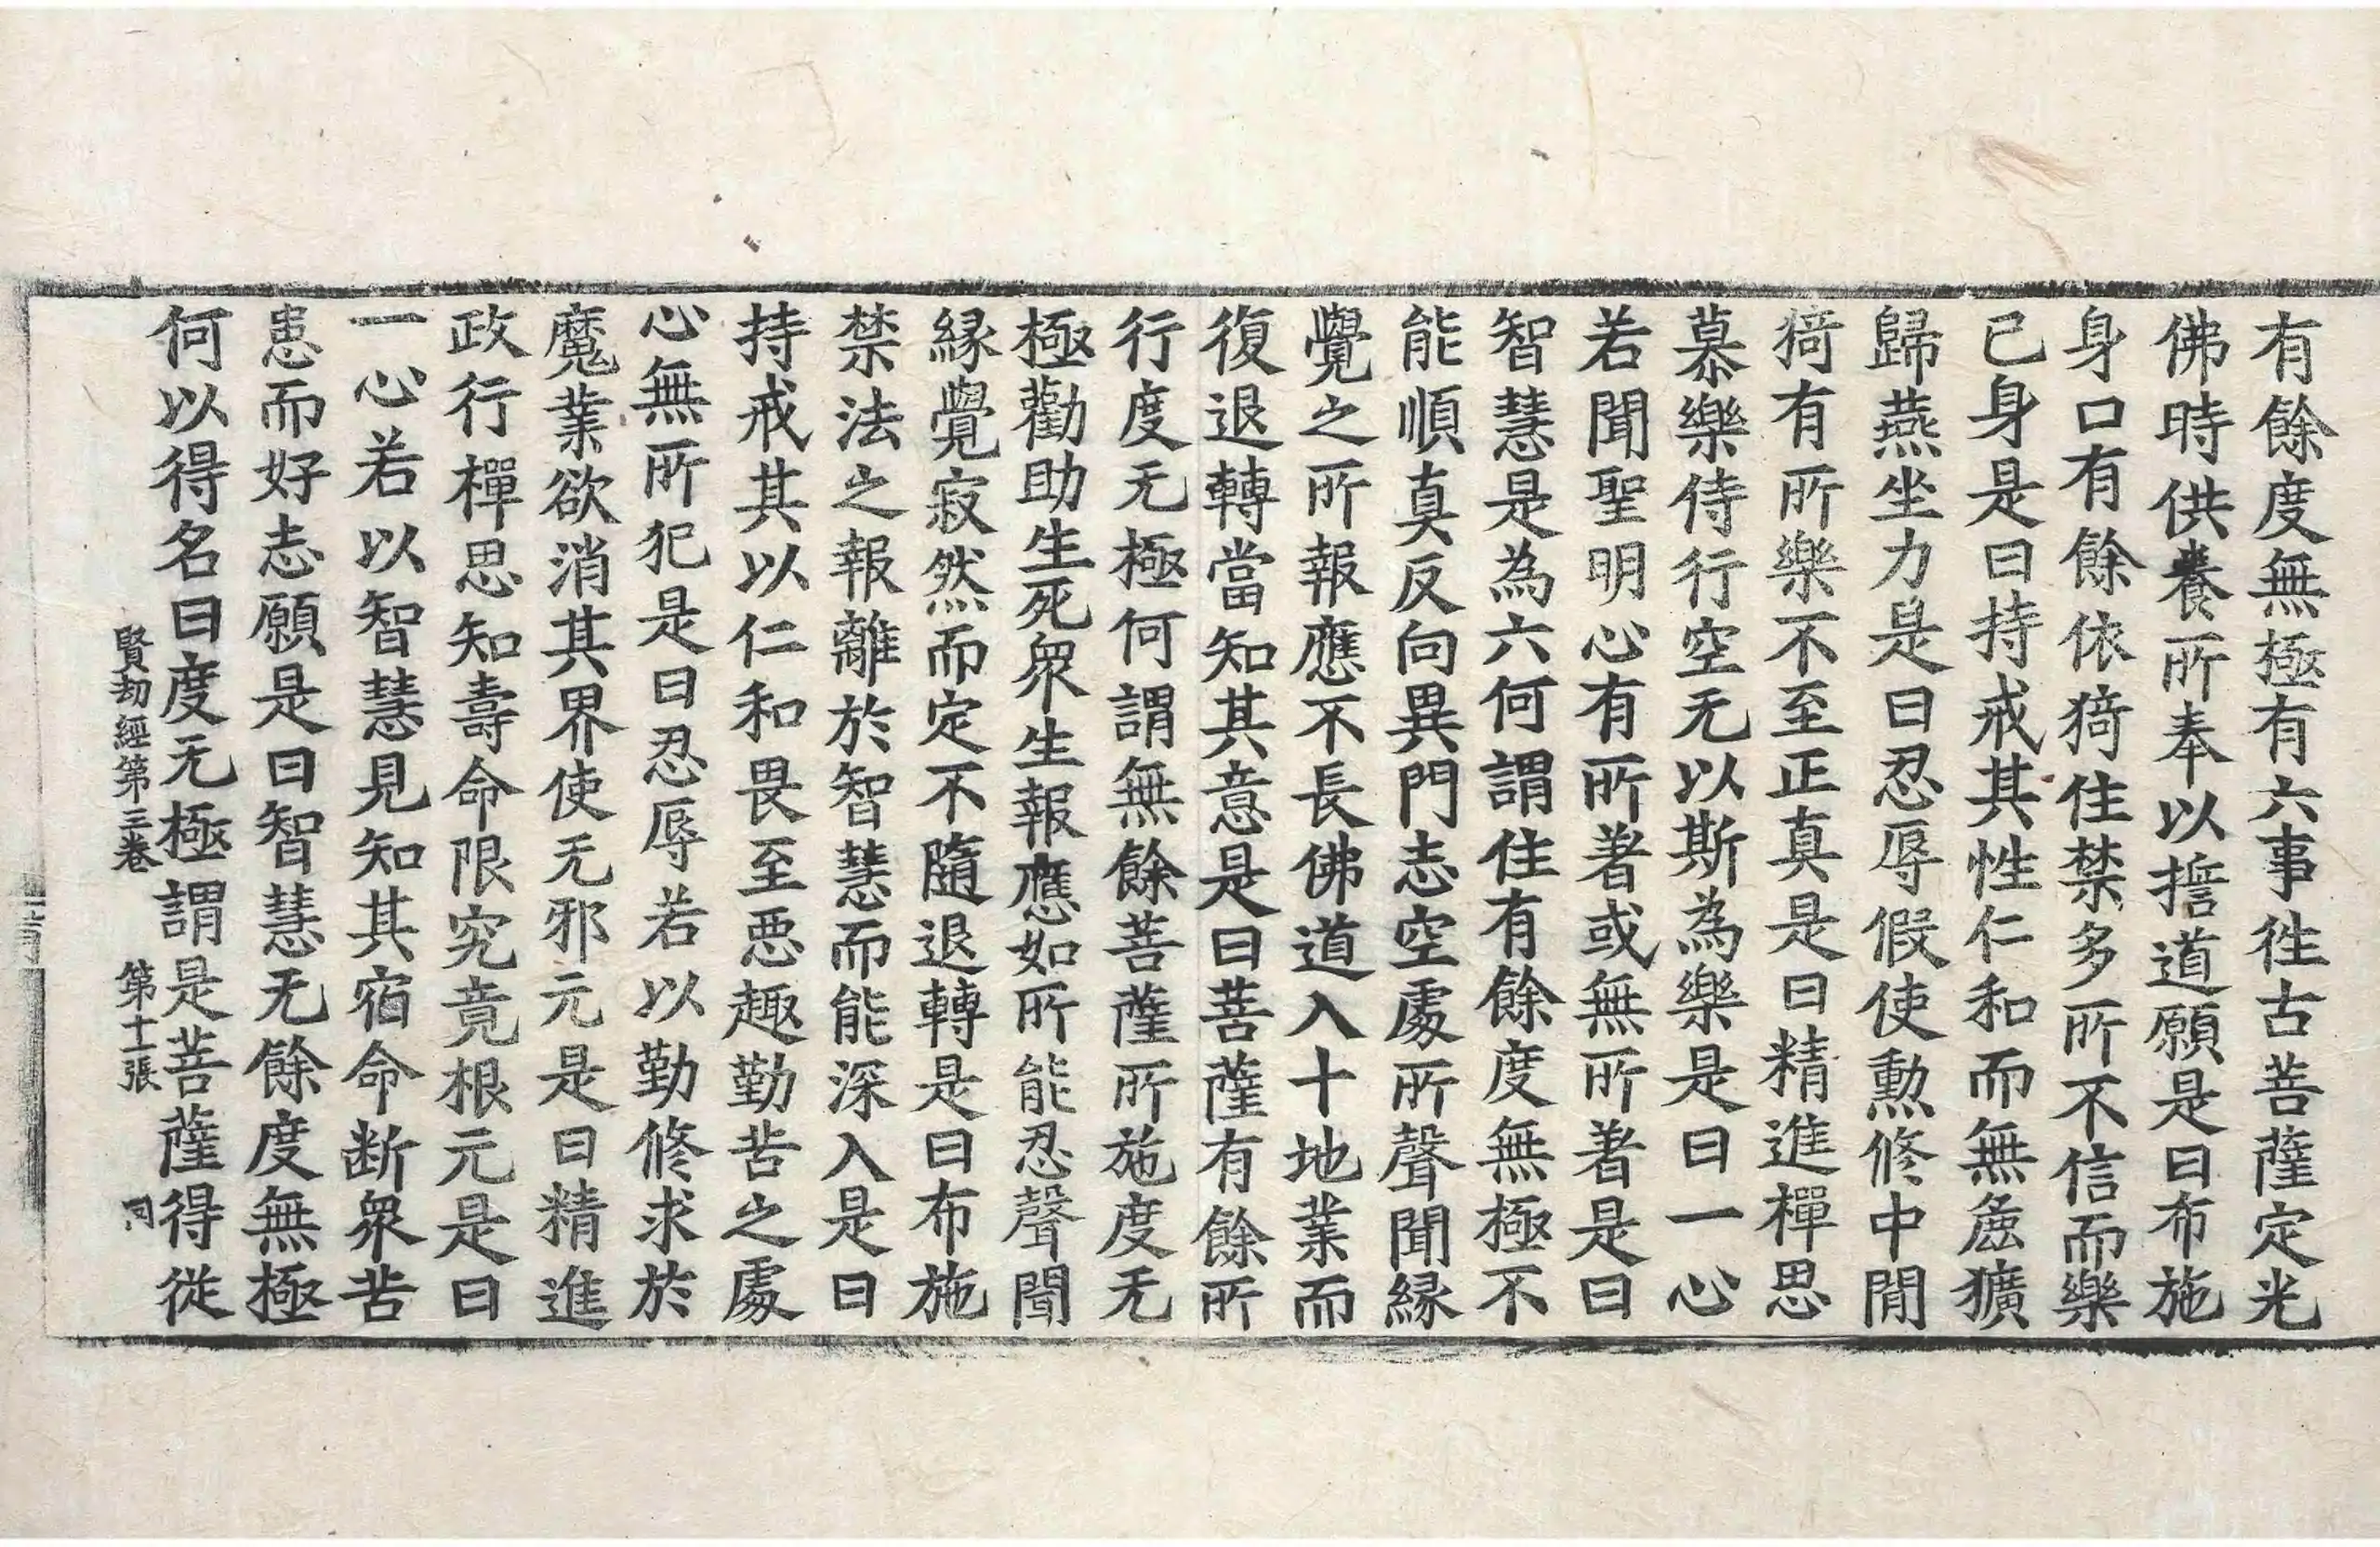 有餘度無極有六事徃古菩薩定光
佛時供養所奉以擔道願是曰布施
身口有餘依猗住禁多所不信而樂
已身是曰持戒其性仁和而無麁獷
歸燕坐力是曰忍辱假使勲修中閒
猗有所樂不至正真是曰精進禪思
慕樂侍行空无以斯為樂是曰一心
若聞聖明心有所著或無所著是曰
智慧是為六何謂住有餘度無極不
能順真反向異門志空處所聲聞縁
覺之所報應不長佛道入十地業而
復退轉當知其意是曰菩薩有餘所
行度无極何謂無餘菩薩所施度无
極勸助生死衆生報應如所能忍聲聞
縁覺寂然而定不隨退轉是曰布施
禁法之報離於智慧而能深入是曰
持戒其以仁和畏至悪趣勤苦之處
心無所犯是曰忍辱若以勤修求於
魔業欲消其界使无邪元是曰精進
政行禪思知壽命限究竟根元是曰
一心若以智慧見知其宿命断衆苦
患而好志願是曰智慧无餘度無極
何以得名曰度无極謂是菩薩得從
賢劫經第三卷 第十一張